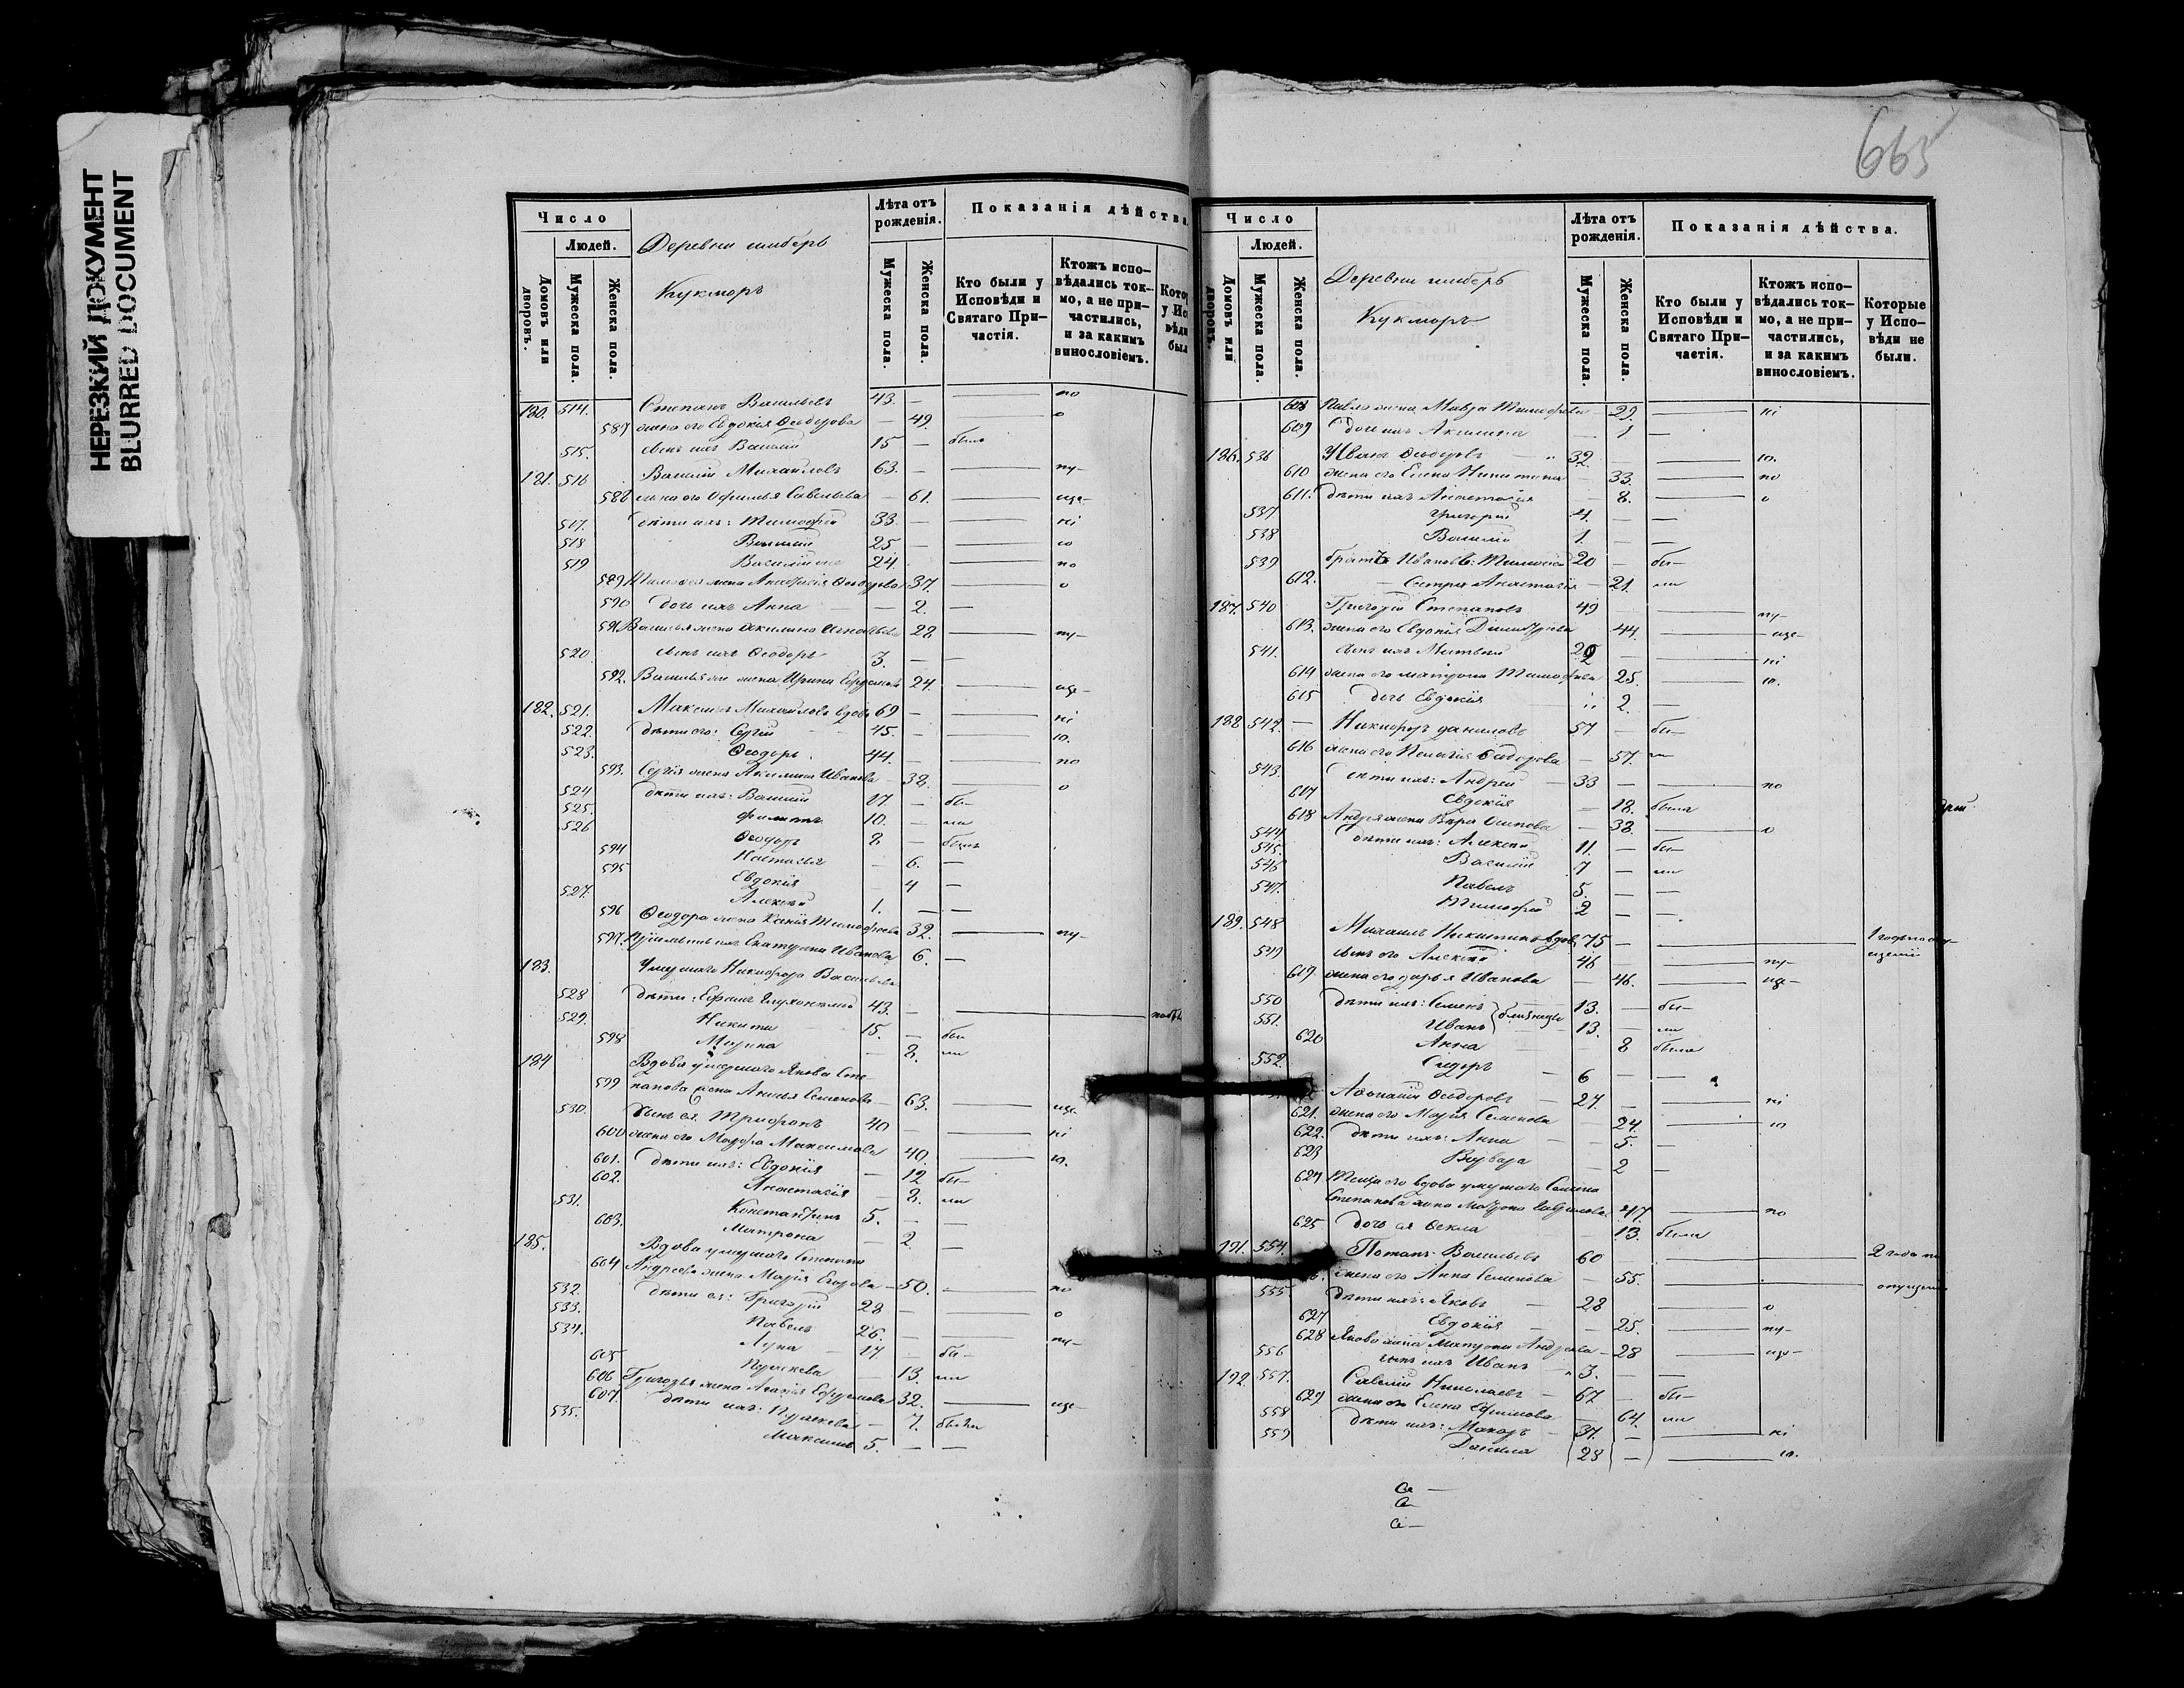 НЕРЕЗКИЙ ДОКУМЕНТ
BLURRED DOCUMENT
665
Число
Людей.
Домовъ или дворовъ.
Мужеска пола.
Женска пола.
Деревни
Кукморъ
Лѣта отъ рожденія.
Мужеска пола.
Женска пола.
Показанія дѣйства
Кто были у Исповѣди и Святаго Причастія.
Ктожъ исповѣдались токмо, а не причастились, и за какимъ винословіемъ.
180. 514. Степанъ Васильевъ 43. — по
587 жена его Евдокія Ѳеодорова — 49. о
515. сынъ ихъ Василій 15 — былъ
181. 516 Василій Михайловъ 63. — пу-
588 жена его Савельева — 61. ще-
517. дѣти ихъ: Тимофей 33. — ні
518 Василій 25 — ю
519 24. по
589 жена Ѳеодорова 37. о
590 дочь ихъ Анна — 2. —
591. Василья жена Акилина 28 пу-
520. сынъ ихъ Ѳеодоръ 3. — —
592. жена Ирина 24. ще-
182. 521. Максимъ Михайловъ вдовъ 69 — ні
522. дѣти его: Сергій 45. — ю.
523. Ѳеодоръ 44. по
593. Сергія жена Акилина Иванова 38. о
524 дѣти ихъ: Василій 17. — бы-
525. Филиппъ 10. — ли
526 Ѳеодоръ 8 — былъ
594 Настасья — 6. —
595 Евдокія 4 —
527. Алексѣй 1. — —
596 Ѳеодора жена Ксенія Тимофеева 32. пу-
597. Екатерина Иванова 6. —
183. Умершаго Никифора Васильева
528 дѣти: Ефимъ 43. —
529. Никита 15. — бы
598 Марина — 8. ли
184 Вдова умершаго Якова Сте-
599 панова жена Семенова 63. ще-
530. Сынъ ея Трифонъ 40 — ні
600 жена его Марфа Максимова 40. ю.
601. дѣти ихъ: Евдокія — 12 бы-
602. Анастасія — 8. ли
531. Константинъ 5. — —
603. Матрона — 2 —
185. Вдова умершаго Степана
604 Андреева жена Марія Егорова — 50. по
532. дѣти ея: Григорій 28 — о
533. Павелъ 26. — пу-
534. Лука 17. — бы-
605 Праскева — 13. ли
606 Григорья жена Агафія Ефремова 32. ще-
607. дѣти ихъ: Праскева — 7. была
535. Максимъ 5. — —
Число
Людей.
Домовъ или дворовъ.
Мужеска пола.
Женска пола.
Деревни
Кукморъ
Лѣта отъ рожденія.
Мужеска пола.
Женска пола.
Показанія дѣйства.
Кто были у Исповѣди и Святаго Причастія.
Ктожъ исповѣдались токмо, а не причастились, и за какимъ винословіемъ.
Которые у Исповѣди не были.
608 Павла жена Мавра Тимофеева 29. ні
609 дочь ихъ Акилина — 1 —
186. 536 Иванъ Ѳеодоровъ 32. — ю.
610 жена его Елена Никитина 33. по
611. дѣти ихъ Анастасія — 8. о
537 Григорій 4. — —
538 Василій 1. — —
539 братъ Ивановъ: Тимофей 20 — бы-
612. Сестра Анастасія — 21. ли
187. 540 Григорій Степановъ 49 пу-
613. жена его Евдокія Димитріева 44. ще-
541. сынъ ихъ Матвѣй — ні
614 жена его Матрона Тимофеева 25. ю.
615 дочь Евдокія 2. —
188 542. — Никифоръ Даниловъ 57 — бы-
616 жена его Пелагія Ѳеодорова — 57. ли
543. дѣти ихъ: Андрей 33 — по
617 Евдокія — 18. была
618 Андрея жена Вѣра Осипова — 38. о
544 дѣти ихъ: Алексѣй 11. — бы-
545. Василій 7 — ли
546 Павелъ 5. — —
547. Тимофей 2 — —
189. 548 Михаилъ Никитинъ вдов. 75 — 1 годъ по опу-
549 сынъ его Алексѣй 46 пу- щенію
619. жена его Дарья Иванова — 46. ще-
550 дѣти ихъ: Семенъ близнецы 13. — бы-
551. Иванъ 13. — ли
620 Анна — 8 была
552. Сидоръ 6 — —
Аѳанасій Ѳеодоровъ 27. — ні
621. жена его Марія Семенова 24. ю
622. дѣти ихъ: Анна — 5. —
623 Варвара — 2 —
624 Теща его вдова умершаго Семена
Степанова жена Матрона 47. по
625 дочь ея Ѳекла — 13. была
191. 554. Потапъ Васильевъ 60 2 года по
жена его Анна Семенова — 55. опущен
555. дѣти ихъ: Яковъ 28 — о
627 Евдокія — 25. пу-
628 Якова жена Матрона Андреева — 28 ще-
556 сынъ ихъ Иванъ 3. — —
192. 557. Савелій Николаевъ 67 — бы-
629 жена его Елена Ефимова — 64. ли
558 дѣти ихъ: Макаръ 37. — ні
559 Данила 28 — ю.